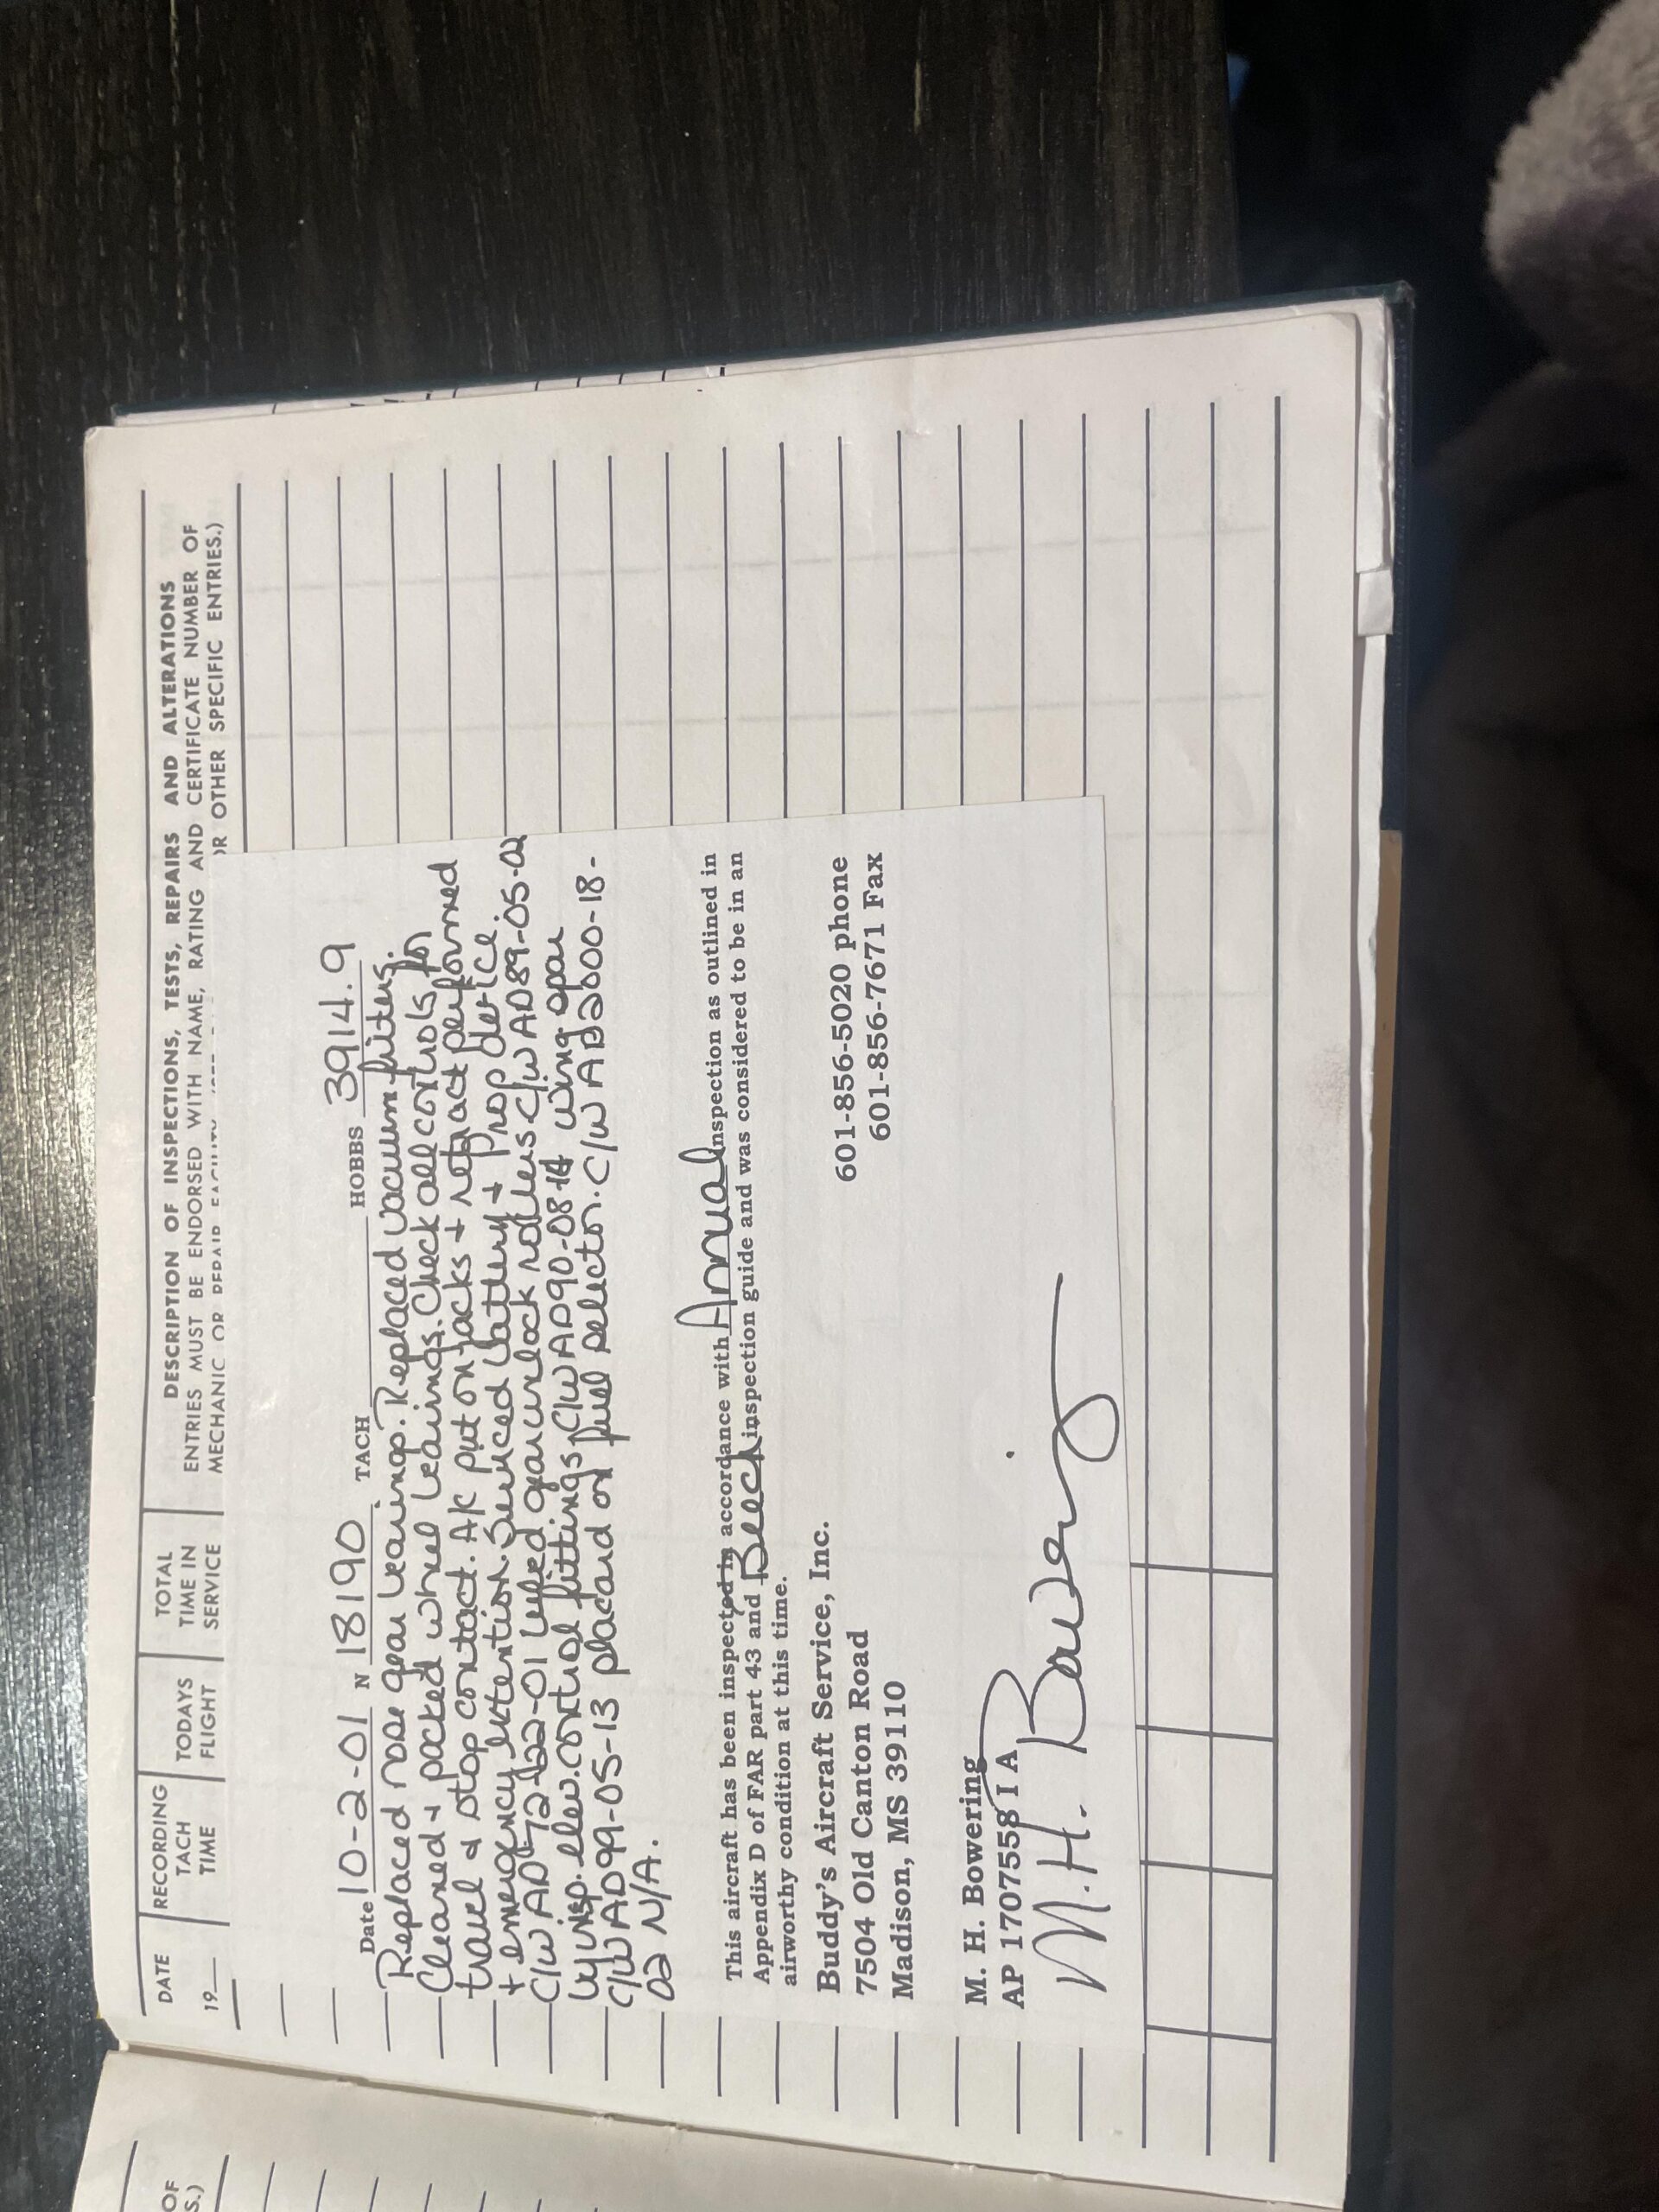 DATE
19
RECORDING TACH TIME
TODAYS FLIGHT
TOTAL TIME IN SERVICE
DESCRIPTION OF INSPECTIONS, TESTS, REPAIRS AND ALTERATIONS
ENTRIES MUST BE ENDORSED WITH NAME, RATING AND CERTIFICATE NUMBER OF
MECHANIC OR REPAIR FACILITY OR OTHER SPECIFIC ENTRIES.)
Date 10-2-01 N 18190 TACH HOBBS 3914.9
Replaced nose gear bearing. Replaced vacuum filters.
Cleaned & packed wheel bearings. Check all controls for
travel & stop contact. A/C put on jacks & retract performed
& emergency extention. Serviced battery & prop deice
C/W AD 72-22-01 lubed gear uplock rollers C/W AD89-05-02
by insp. elev. control fittings, C/W AD90-08-14 wing spar
C/W AD99-05-13 placard on fuel selector. C/W AD2000-18-
02 N/A.
This aircraft has been inspected in accordance with Annual inspection as outlined in
Appendix D of FAR part 43 and Beech inspection guide and was considered to be in an
airworthy condition at this time.
Buddy's Aircraft Service, Inc. 601-856-5020 phone
7504 Old Canton Road 601-856-7671 Fax
Madison, MS 39110
M. H. Bowering
AP 1707558 I A
M. H. Bowering
OF
S.)